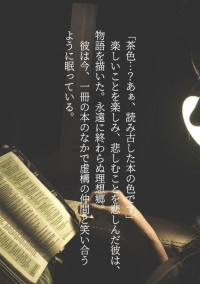 「茶色…？あぁ、読み古した本の色です」
楽しいことを楽しみ、悲しむことを悲しんだ彼は、
物語を描いた。永遠に終わらぬ理想郷。
彼は今、一冊の本のなかで虚構の仲間と笑い合う
ように眠っている。